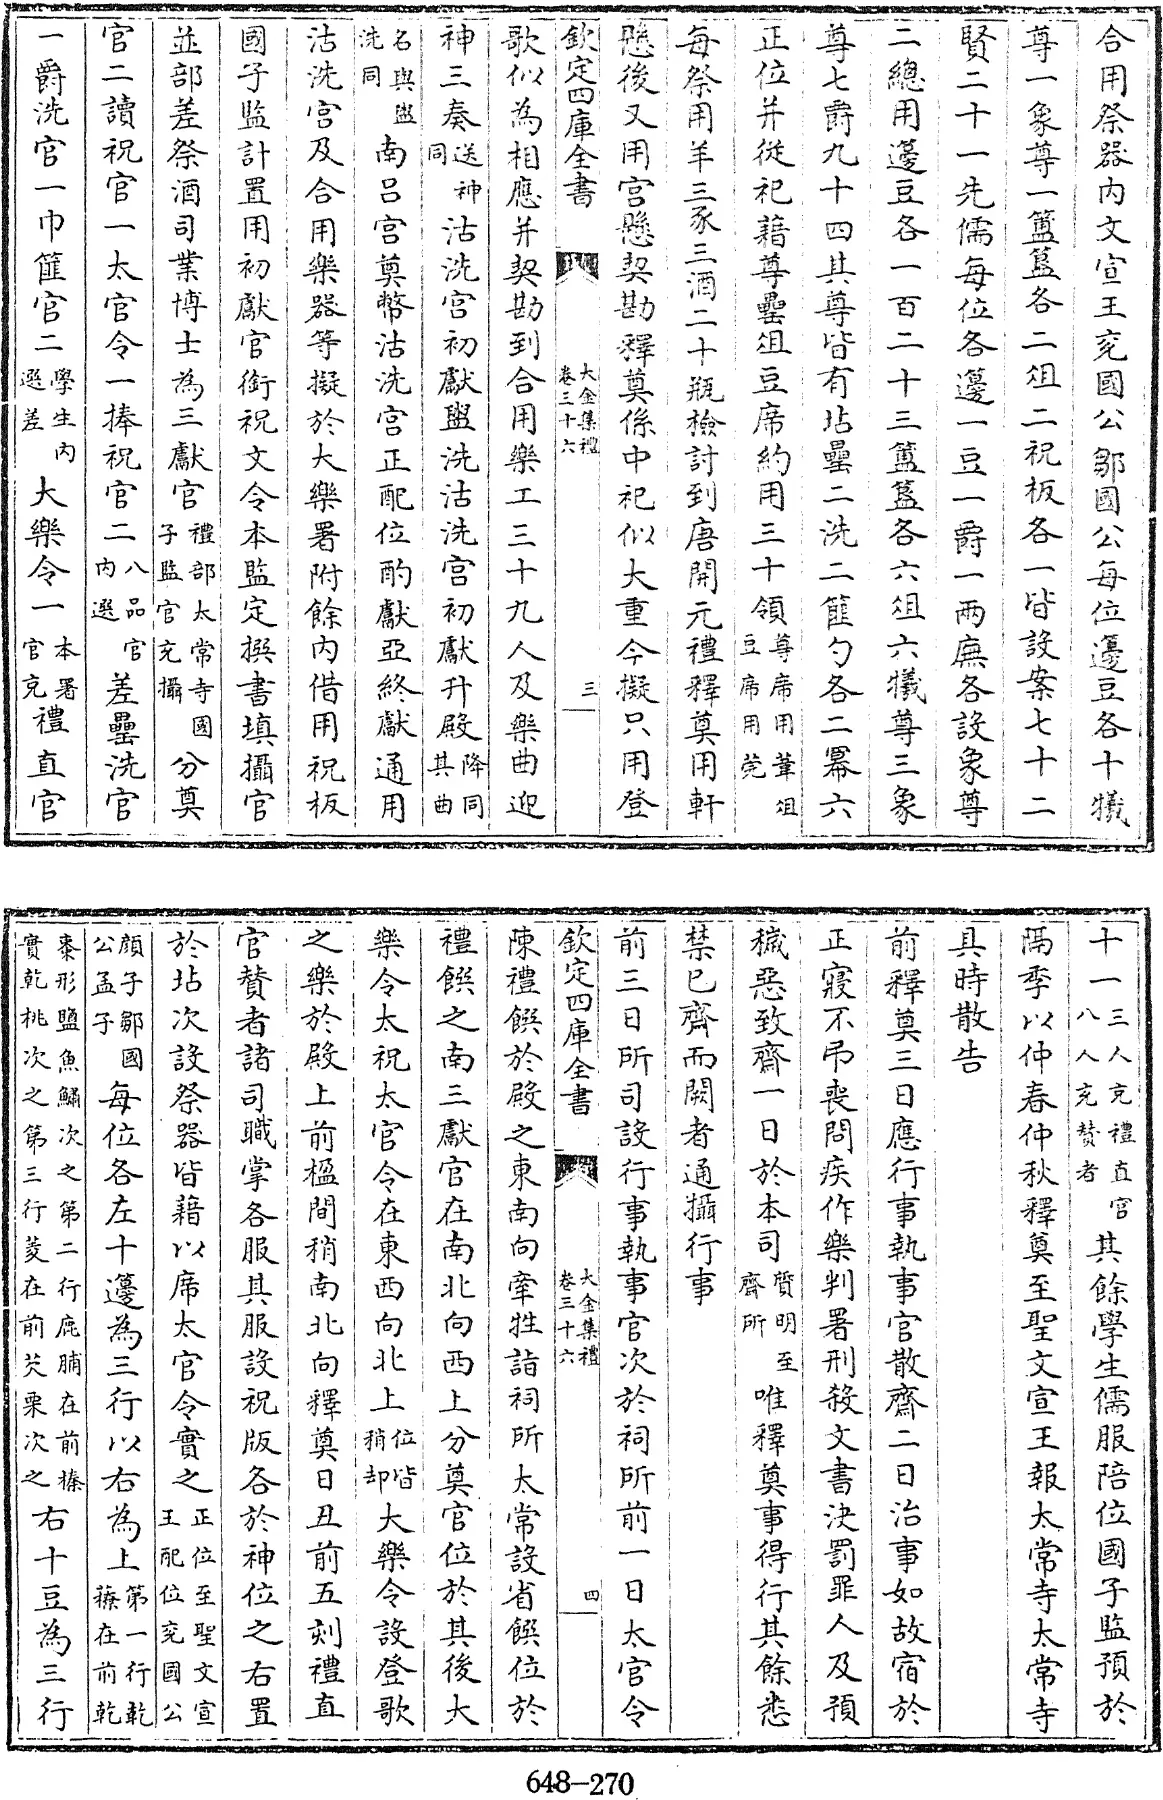 合用祭器内文宣王兖國公鄒國公每位籩豆各十犧
尊一象尊一簠簋各二俎二祝板各一皆設案七十二
賢二十一先儒每位各籩一豆一爵一兩廡各設象尊
二總用籩豆各一百二十三簠簋各六俎六犧尊三象
尊七爵九十四其尊皆有坫罍二洗二篚勺各二冪六
正位并從祀藉尊罍俎豆席約用三十領尊席用葦俎豆席用莞
每祭用羊三豕三酒二十瓶檢討到唐開元禮釋奠用軒
懸後又用宫懸契勘釋奠係中祀似大重今擬只用登
欽定四庫全書 大金集禮卷三十六 三
歌似為相應并契勘到合用樂工三十九人及樂曲迎
神三奏送神同沽洗宫初獻盥洗沽洗宫初獻升殿降同其曲
名與盥洗同南吕宫奠幣沽洗宫正配位酌獻亞終獻通用
沽洗宫及合用樂器等擬於大樂署附餘内借用祝板
國子監計置用初獻官銜祝文令本監定撰書填攝官
並部差祭酒司業博士為三獻官禮部太常寺國子監官充攝分奠
官二讀祝官一太官令一捧祝官二八品官内選差罍洗官
一爵洗官一巾篚官二學生内選差大樂令一本署官充禮直官
十一三人充禮直官八人充贊者其餘學生儒服陪位國子監預於
隔季以仲春仲秋釋奠至聖文宣王報太常寺太常寺
具時散告
前釋奠三日應行事執事官散齋二日治事如故宿於
正寢不弔喪問疾作樂判署刑殺文書決罰罪人及預
穢惡致齋一日於本司質明至齊所唯釋奠事得行其餘悉
禁已齊而闕者通攝行事
前三日所司設行事執事官次於祠所前一日太官令
欽定四庫全書 大金集禮卷三十六 四
陳禮饌於殿之東南向牽牲詣祠所太常設省饌位於
禮饌之南三獻官在南北向西上分奠官位於其後大
樂令太祝太官令在東西向北上位皆稍却大樂令設登歌
之樂於殿上前楹間稍南北向釋奠日丑前五刻禮直
官贊者諸司職掌各服其服設祝版各於神位之右置
於坫次設祭器皆藉以席太官令實之正位至聖文宣王配位兖國公
顔子鄒國公孟子每位各左十籩為三行以右為上第一行乾䕩在前乾
棗形鹽魚鱐次之第二行鹿脯在前榛實乾桃次之第三行菱在前芡栗次之右十豆為三行
648—270